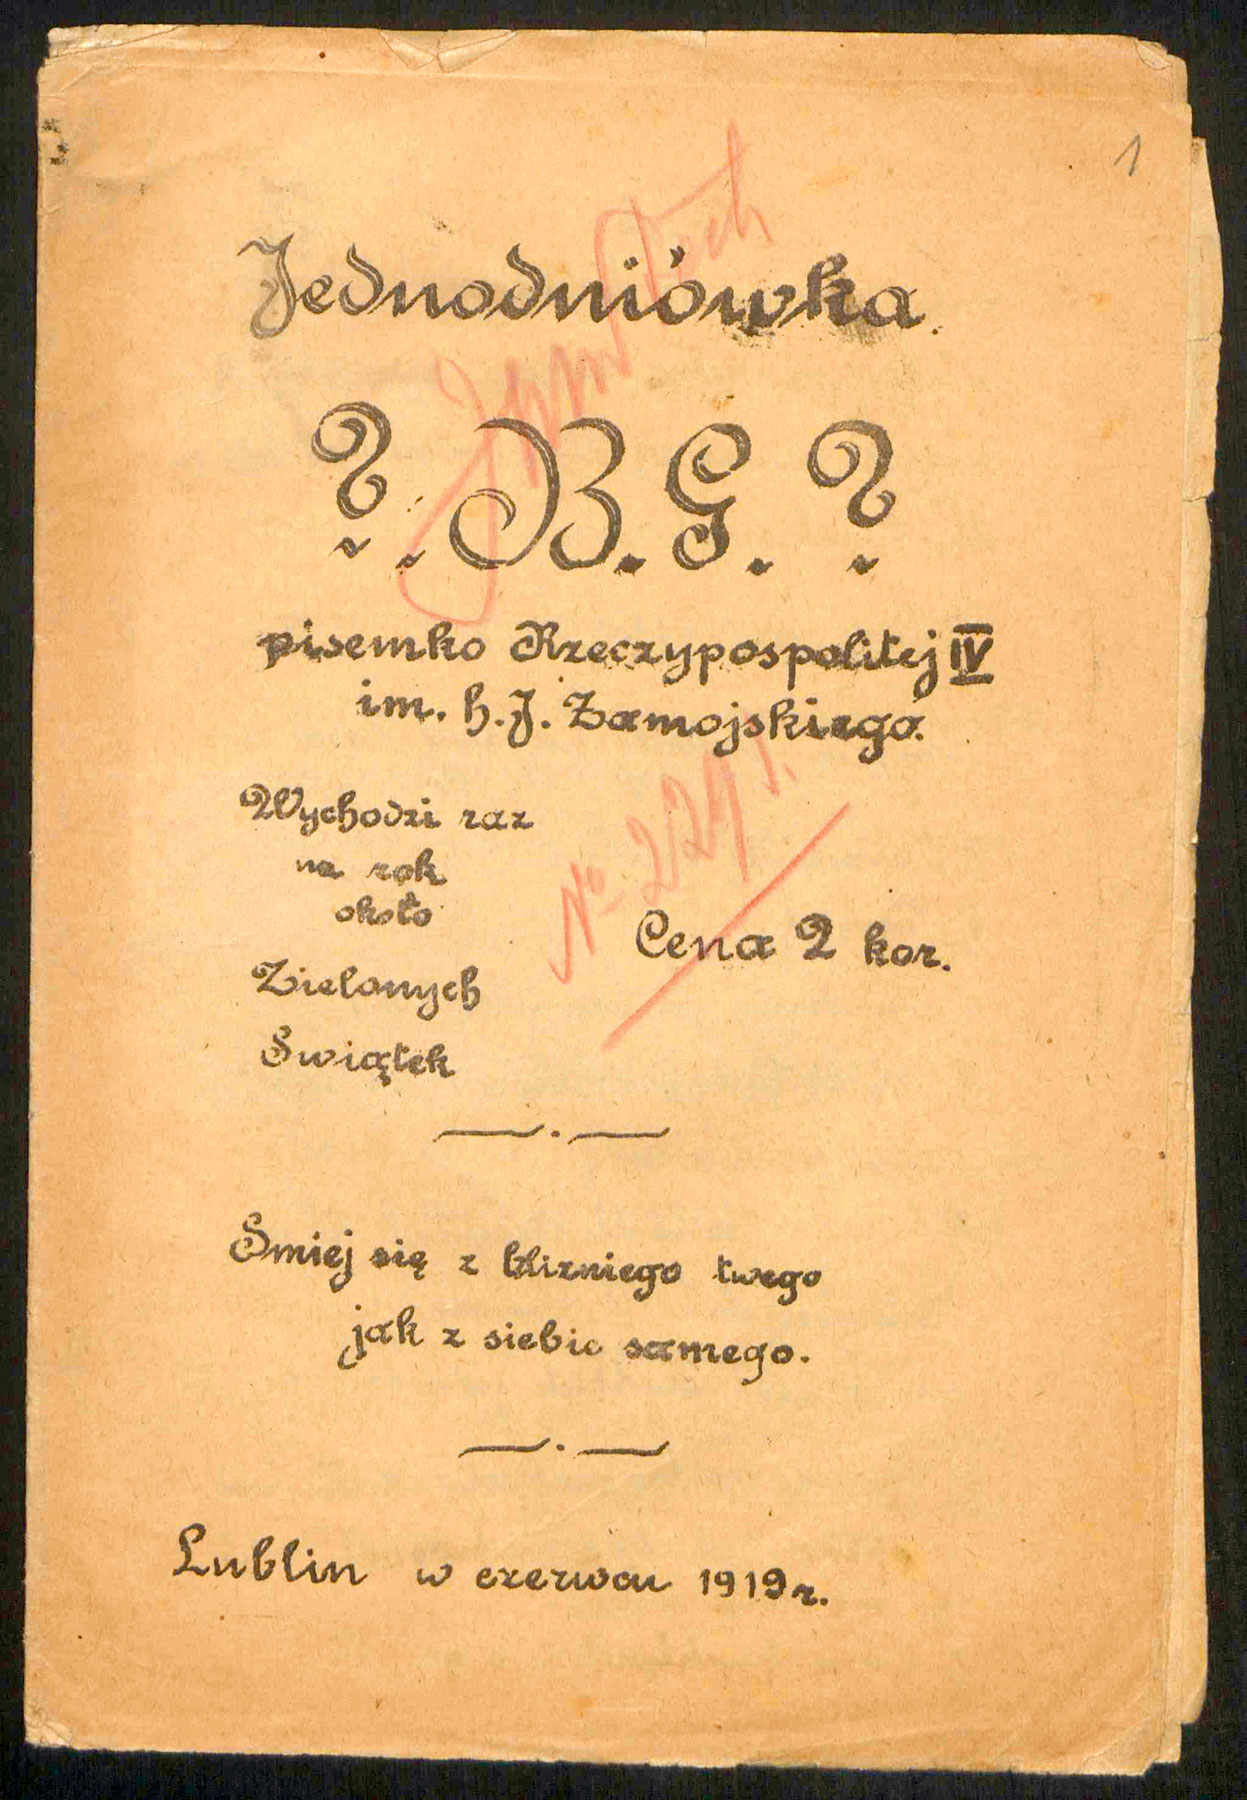 1
Jednodniówka
? . B. G. ?
pisemko Rzeczypospolitej IV
im. h. J. Zamojskiego.
Wychodzi raz
na rok
około
Zielonych
Swiątek
Cena 2 kor.
Nº 229
Smiej się z blizniego twego
jak z siebie samego.
Lublin w czerwcu 1919 r.